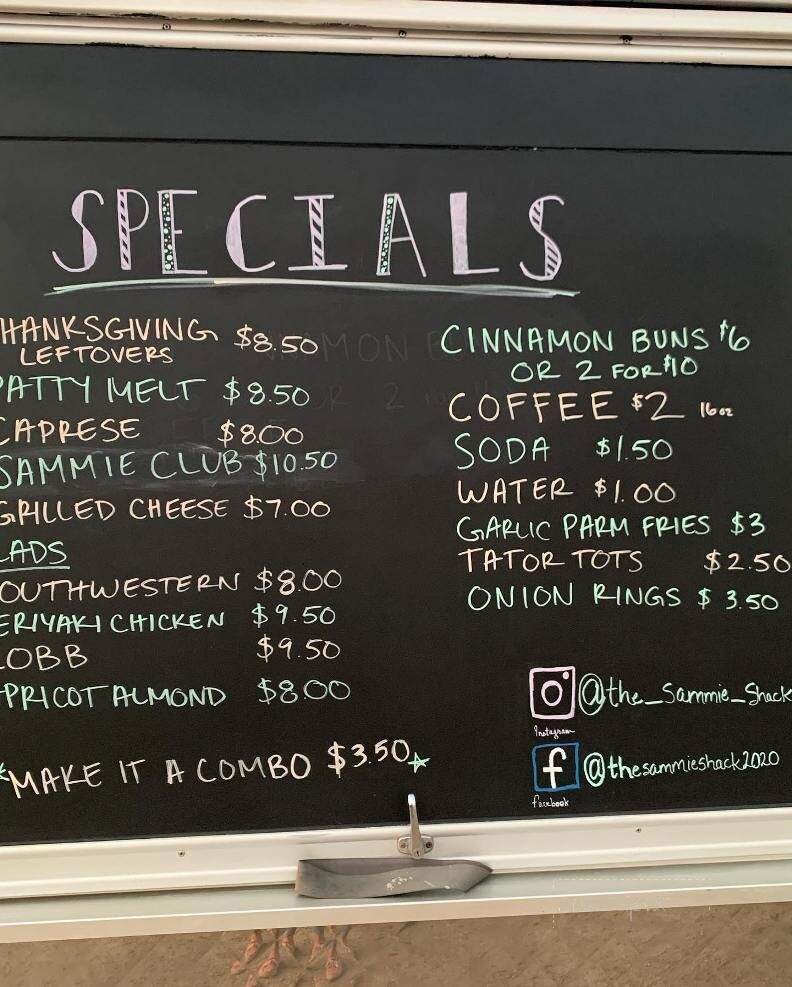 SPECIALS
HANKSGIVING $8.50
LEFTOVERS
PATTY MELT $8.50
CAPRESE $8.00
SAMMIE CLUB $10.50
GRILLED CHEESE $7.00
LADS
OUTHWESTERN $8.00
ERIYAKI CHICKEN $9.50
COBB $9.50
PRICOT ALMOND $8.00
*MAKE IT A COMBO $3.50*
CINNAMON BUNS $6
OR 2 FOR $10
COFFEE $2 16oz
SODA $1.50
WATER $1.00
GARLIC PARM FRIES $3
TATOR TOTS $2.50
ONION RINGS $3.50
@the_Sammie_Shack
Instagram
f @thesammieshack2020
facebook